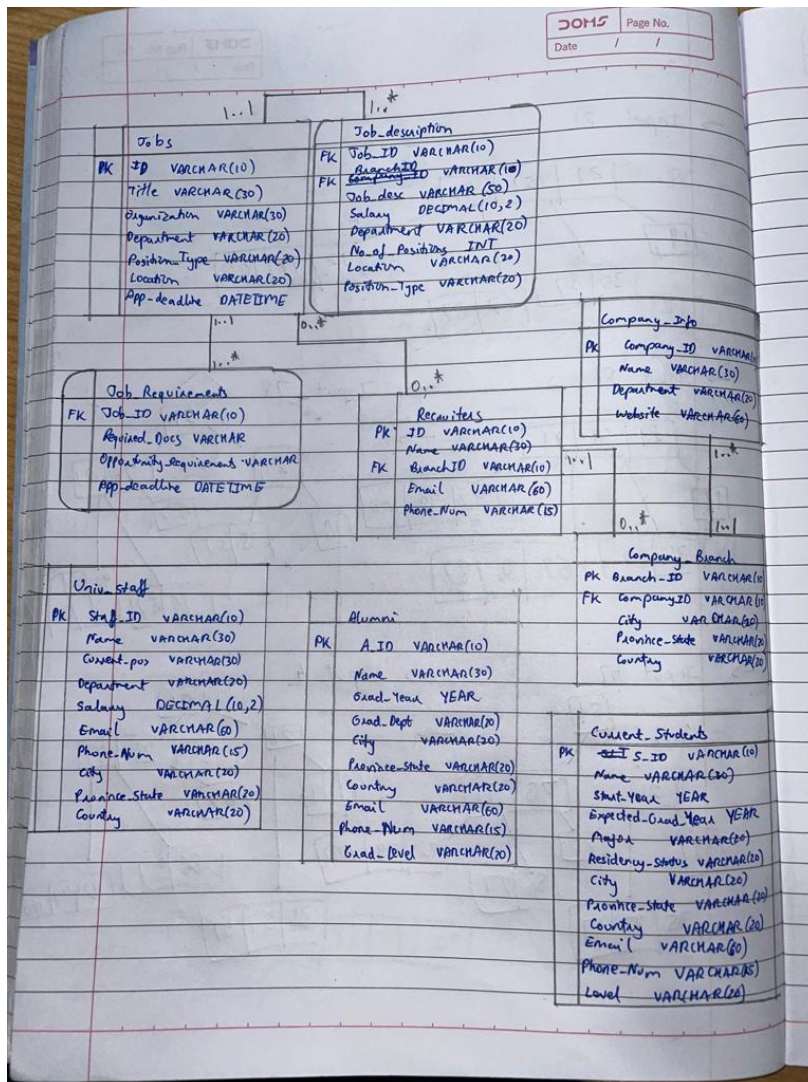 DOMS Page No.
Date / /
1..1 1..*
Jobs
PK ID VARCHAR(10)
Title VARCHAR(30)
Organization VARCHAR(30)
Department VARCHAR(20)
Position_Type VARCHAR(20)
Location VARCHAR(20)
App-deadline DATETIME
Job_description
FK Job_ID VARCHAR(10)
FK BranchID VARCHAR(10)
Job_desc VARCHAR(50)
Salary DECIMAL(10,2)
Department VARCHAR(20)
No_of_Positions INT
Location VARCHAR(20)
Position_Type VARCHAR(20)
1..1 0..*
1..*
Job_Requirements
FK Job_ID VARCHAR(10)
Required_Docs VARCHAR
Opportunity_Requirements VARCHAR
App-deadline DATETIME
0..*
Recruiters
PK ID VARCHAR(10)
Name VARCHAR(30)
FK BranchID VARCHAR(10)
Email VARCHAR(60)
Phone_Num VARCHAR(15)
Company_Info
PK Company_ID VARCHAR(1
Name VARCHAR(30)
Department VARCHAR(20)
Website VARCHAR(60)
1..1 1..*
0..* 1..1
Company_Branch
PK Branch_ID VARCHAR(10
FK CompanyID VARCHAR(10
City VARCHAR(20)
Province_State VARCHAR(20)
Country VARCHAR(20)
Univ_staff
PK Staf_ID VARCHAR(10)
Name VARCHAR(30)
Current-pos VARCHAR(30)
Department VARCHAR(20)
Salary DECIMAL(10,2)
Email VARCHAR(60)
Phone_Num VARCHAR(15)
City VARCHAR(20)
Province_State VARCHAR(20)
Country VARCHAR(20)
Alumni
PK A_ID VARCHAR(10)
Name VARCHAR(30)
Grad_Year YEAR
Grad_Dept VARCHAR(20)
City VARCHAR(20)
Province_State VARCHAR(20)
Country VARCHAR(20)
Email VARCHAR(60)
Phone_Num VARCHAR(15)
Grad_Level VARCHAR(20)
Current_Students
PK S_ID VARCHAR(10)
Name VARCHAR(30)
Start_Year YEAR
Expected_Grad_Year YEAR
Major VARCHAR(20)
Residency_Status VARCHAR(20)
City VARCHAR(20)
Province_State VARCHAR(20)
Country VARCHAR(20)
Email VARCHAR(60)
Phone_Num VARCHAR(15)
Level VARCHAR(20)